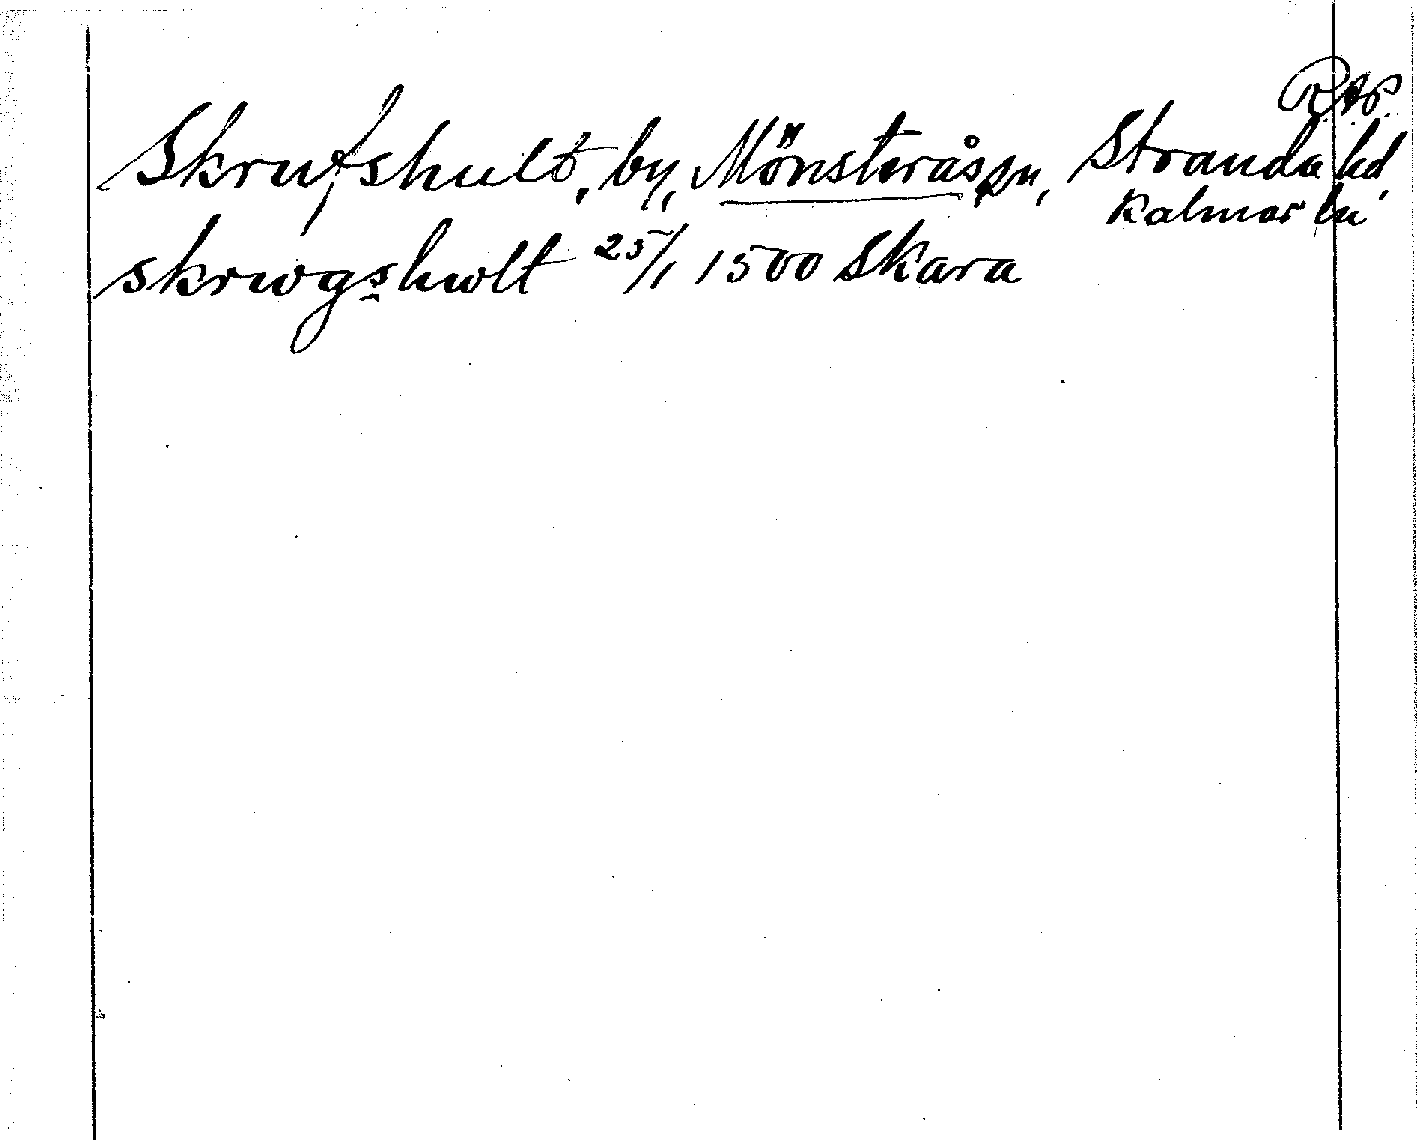 RAP.
Skrufshult, by, Mönsterås sn, Stranda hd,
Kalmar ln
skrwgshwlt 25/1 1500 Skara